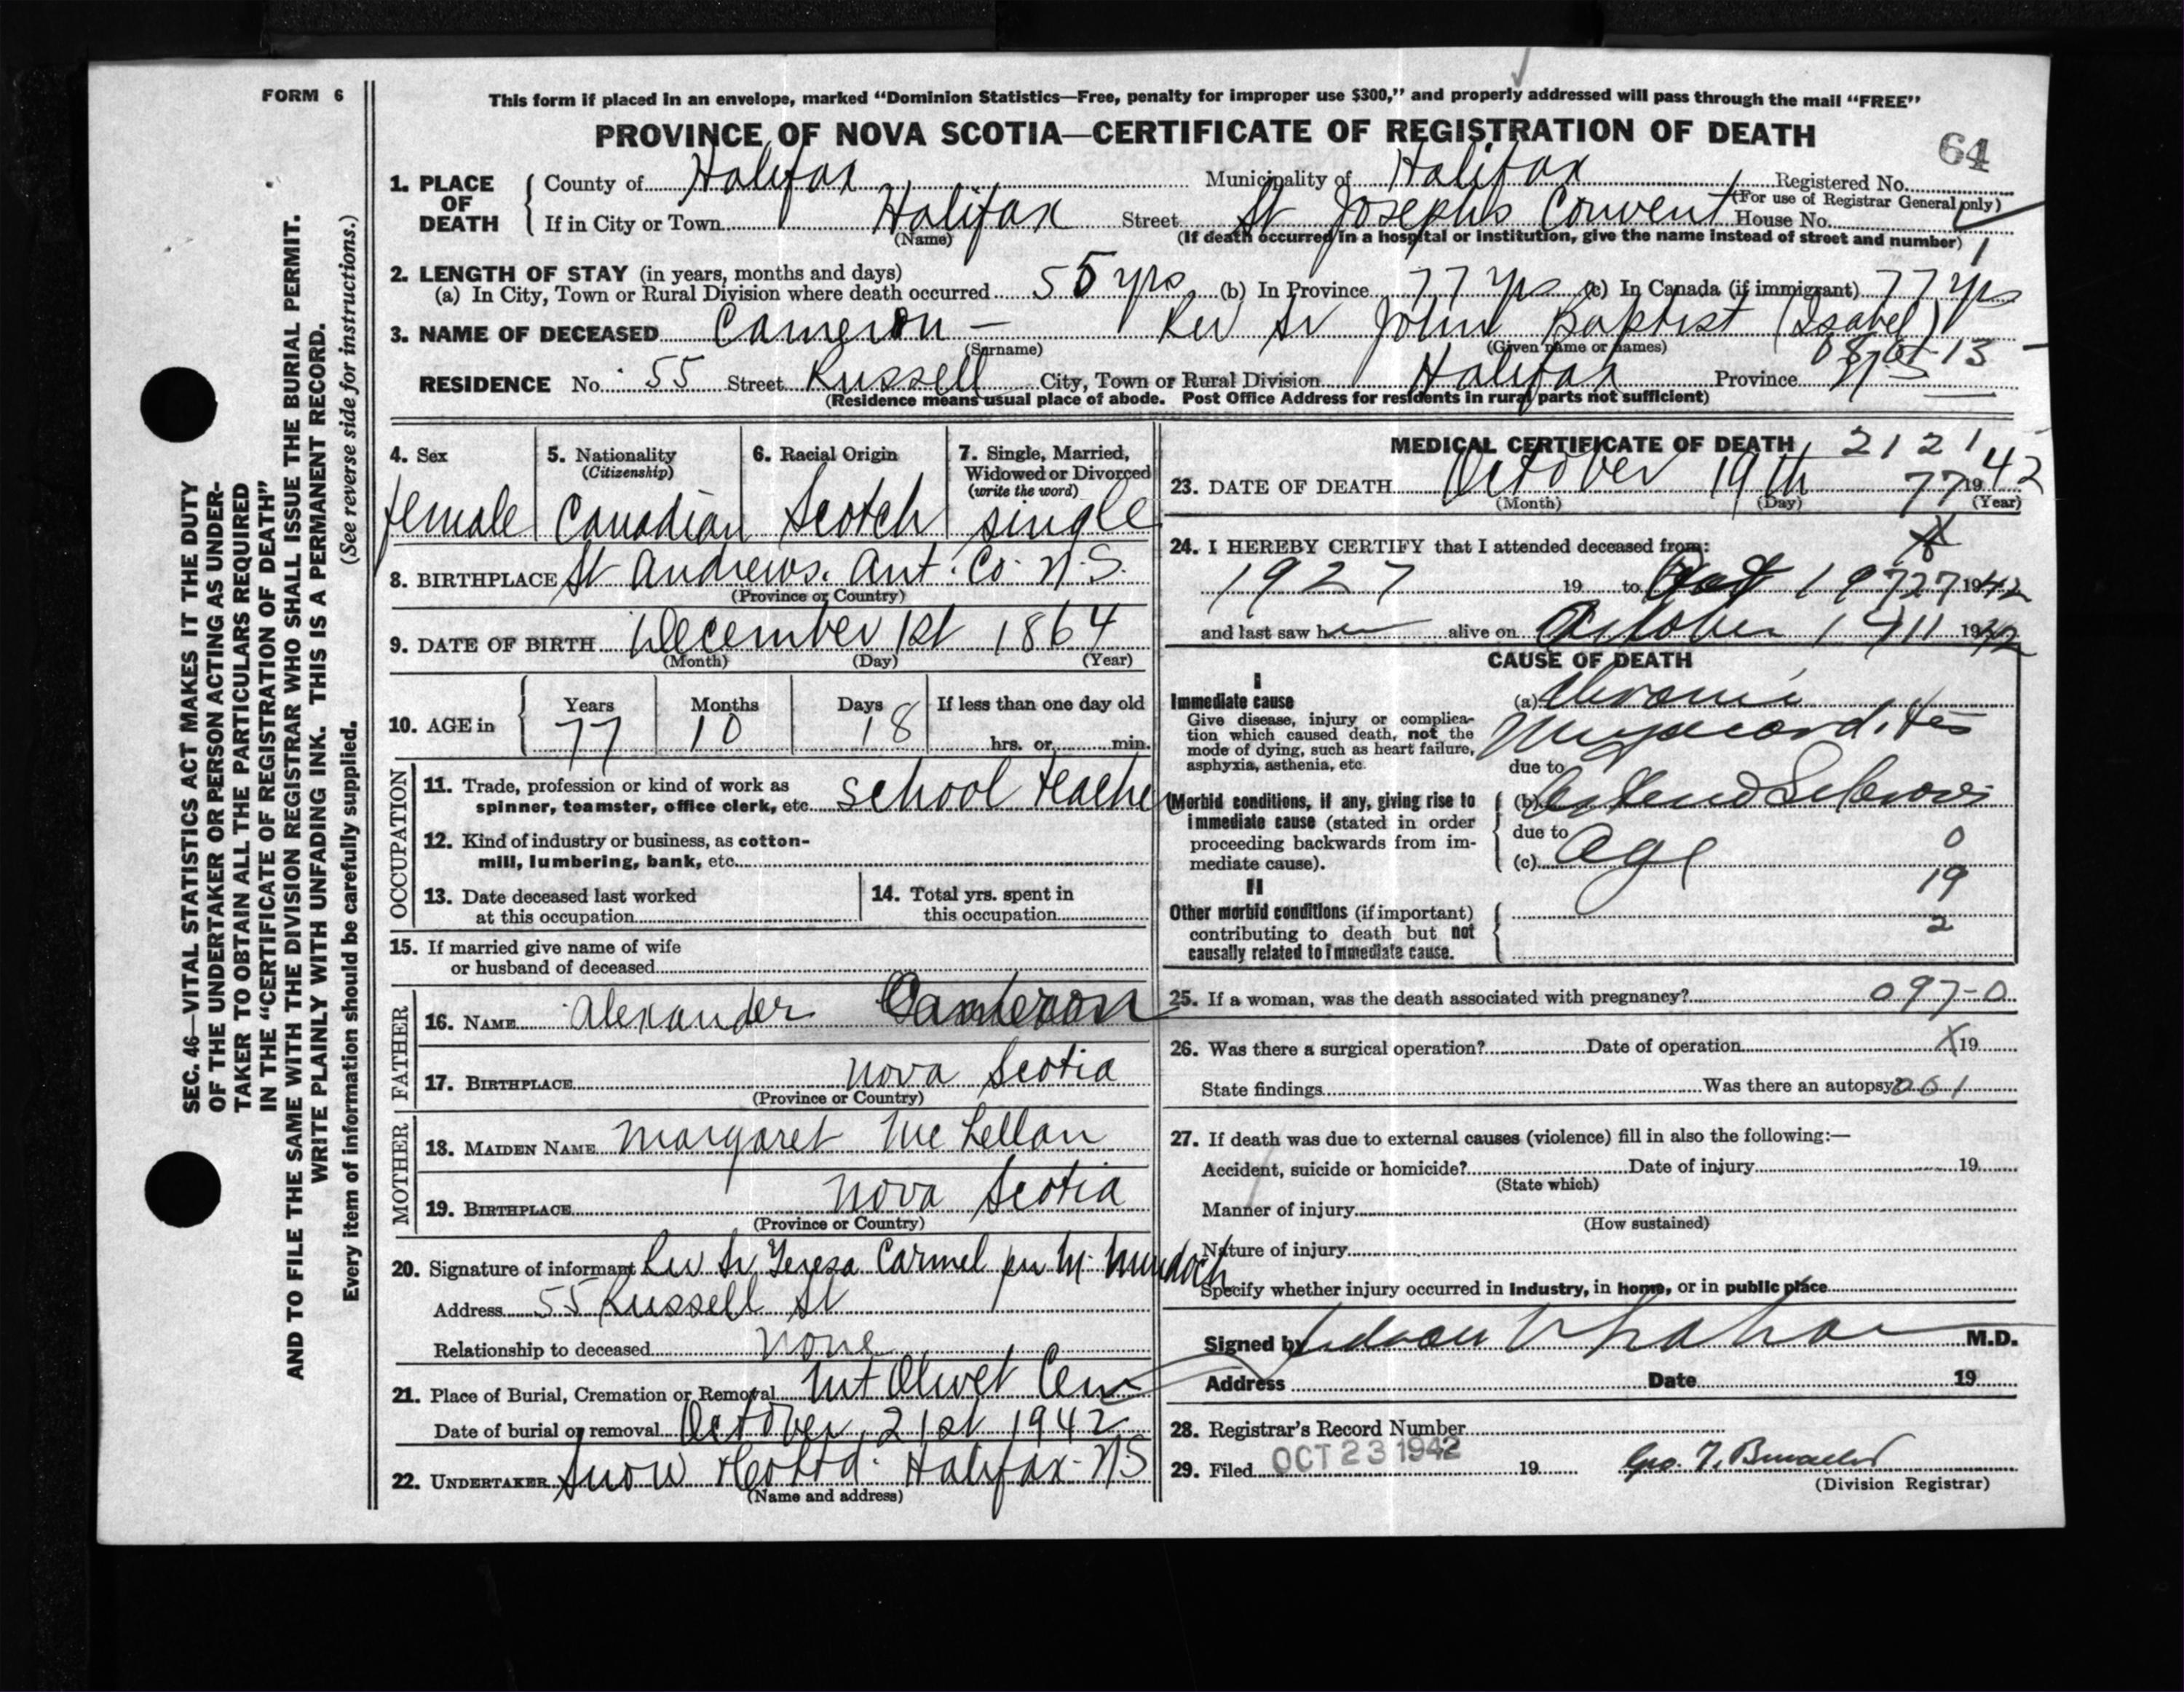 FORM 6
This form if placed in an envelope, marked “Dominion Statistics—Free, penalty for improper use $300,” and properly addressed will pass through the mail “FREE”
PROVINCE OF NOVA SCOTIA—CERTIFICATE OF REGISTRATION OF DEATH
64
1. PLACE OF DEATH
County of Halifax Municipality of Halifax Registered No.
(For use of Registrar General only)
If in City or Town Halifax Street St Josephs Convent House No.
(Name) (If death occurred in a hospital or institution, give the name instead of street and number)
2. LENGTH OF STAY (in years, months and days)
(a) In City, Town or Rural Division where death occurred 55 yrs (b) In Province 77 yrs (c) In Canada (if immigrant) 77 yrs
3. NAME OF DECEASED Cameron — Rev Sr John Baptist (Isabel)
(Surname) (Given name or names)
RESIDENCE No. 55 Street Russell City, Town or Rural Division Halifax Province N.S
(Residence means usual place of abode. Post Office Address for residents in rural parts not sufficient)
4. Sex female
5. Nationality (Citizenship) Canadian
6. Racial Origin Scotch
7. Single, Married, Widowed or Divorced (write the word) single
8. BIRTHPLACE St Andrews. Ant. Co. N.S.
(Province or Country)
9. DATE OF BIRTH December 1st 1864
(Month) (Day) (Year)
10. AGE in Years 77 Months 10 Days 18 If less than one day old hrs. or min.
OCCUPATION
11. Trade, profession or kind of work as
spinner, teamster, office clerk, etc. school teacher
12. Kind of industry or business, as cotton-
mill, lumbering, bank, etc.
13. Date deceased last worked
at this occupation
14. Total yrs. spent in
this occupation
15. If married give name of wife
or husband of deceased
FATHER
16. NAME Alexander Cameron
17. BIRTHPLACE Nova Scotia
(Province or Country)
MOTHER
18. MAIDEN NAME Margaret McLellan
19. BIRTHPLACE Nova Scotia
(Province or Country)
20. Signature of informant Rev Sr Teresa Carmel per M. Murdoch
Address 55 Russell St
Relationship to deceased none
21. Place of Burial, Cremation or Removal Mt Olivet Cem
Date of burial or removal October, 21st 1942
22. UNDERTAKER Snow & Co Ltd. Halifax. N.S
(Name and address)
MEDICAL CERTIFICATE OF DEATH 2121
23. DATE OF DEATH October 19th 77 1942
(Month) (Day) (Year)
24. I HEREBY CERTIFY that I attended deceased from:
1927 19 to Oct 19 1942
and last saw her alive on October 1942
CAUSE OF DEATH
I
Immediate cause
Give disease, injury or complica-
tion which caused death, not the
mode of dying, such as heart failure,
asphyxia, asthenia, etc.
(a) Chronic
Myocarditis
due to
Morbid conditions, if any, giving rise to
immediate cause (stated in order
proceeding backwards from im-
mediate cause).
(b)
due to
(c) Age
0
19
2
II
Other morbid conditions (if important)
contributing to death but not
causally related to immediate cause.
25. If a woman, was the death associated with pregnancy? 097-0
26. Was there a surgical operation? Date of operation X 19
State findings Was there an autopsy? 061
27. If death was due to external causes (violence) fill in also the following:—
Accident, suicide or homicide? Date of injury 19
(State which)
Manner of injury
(How sustained)
Nature of injury
Specify whether injury occurred in Industry, in home, or in public place
Signed by M.D.
Address Date 19
28. Registrar's Record Number
29. Filed OCT 23 1942 19
(Division Registrar)
SEC. 46—VITAL STATISTICS ACT MAKES IT THE DUTY
OF THE UNDERTAKER OR PERSON ACTING AS UNDER-
TAKER TO OBTAIN ALL THE PARTICULARS REQUIRED
IN THE “CERTIFICATE OF REGISTRATION OF DEATH”
AND TO FILE THE SAME WITH THE DIVISION REGISTRAR WHO SHALL ISSUE THE BURIAL PERMIT.
WRITE PLAINLY WITH UNFADING INK. THIS IS A PERMANENT RECORD.
Every item of information should be carefully supplied. (See reverse side for instructions.)